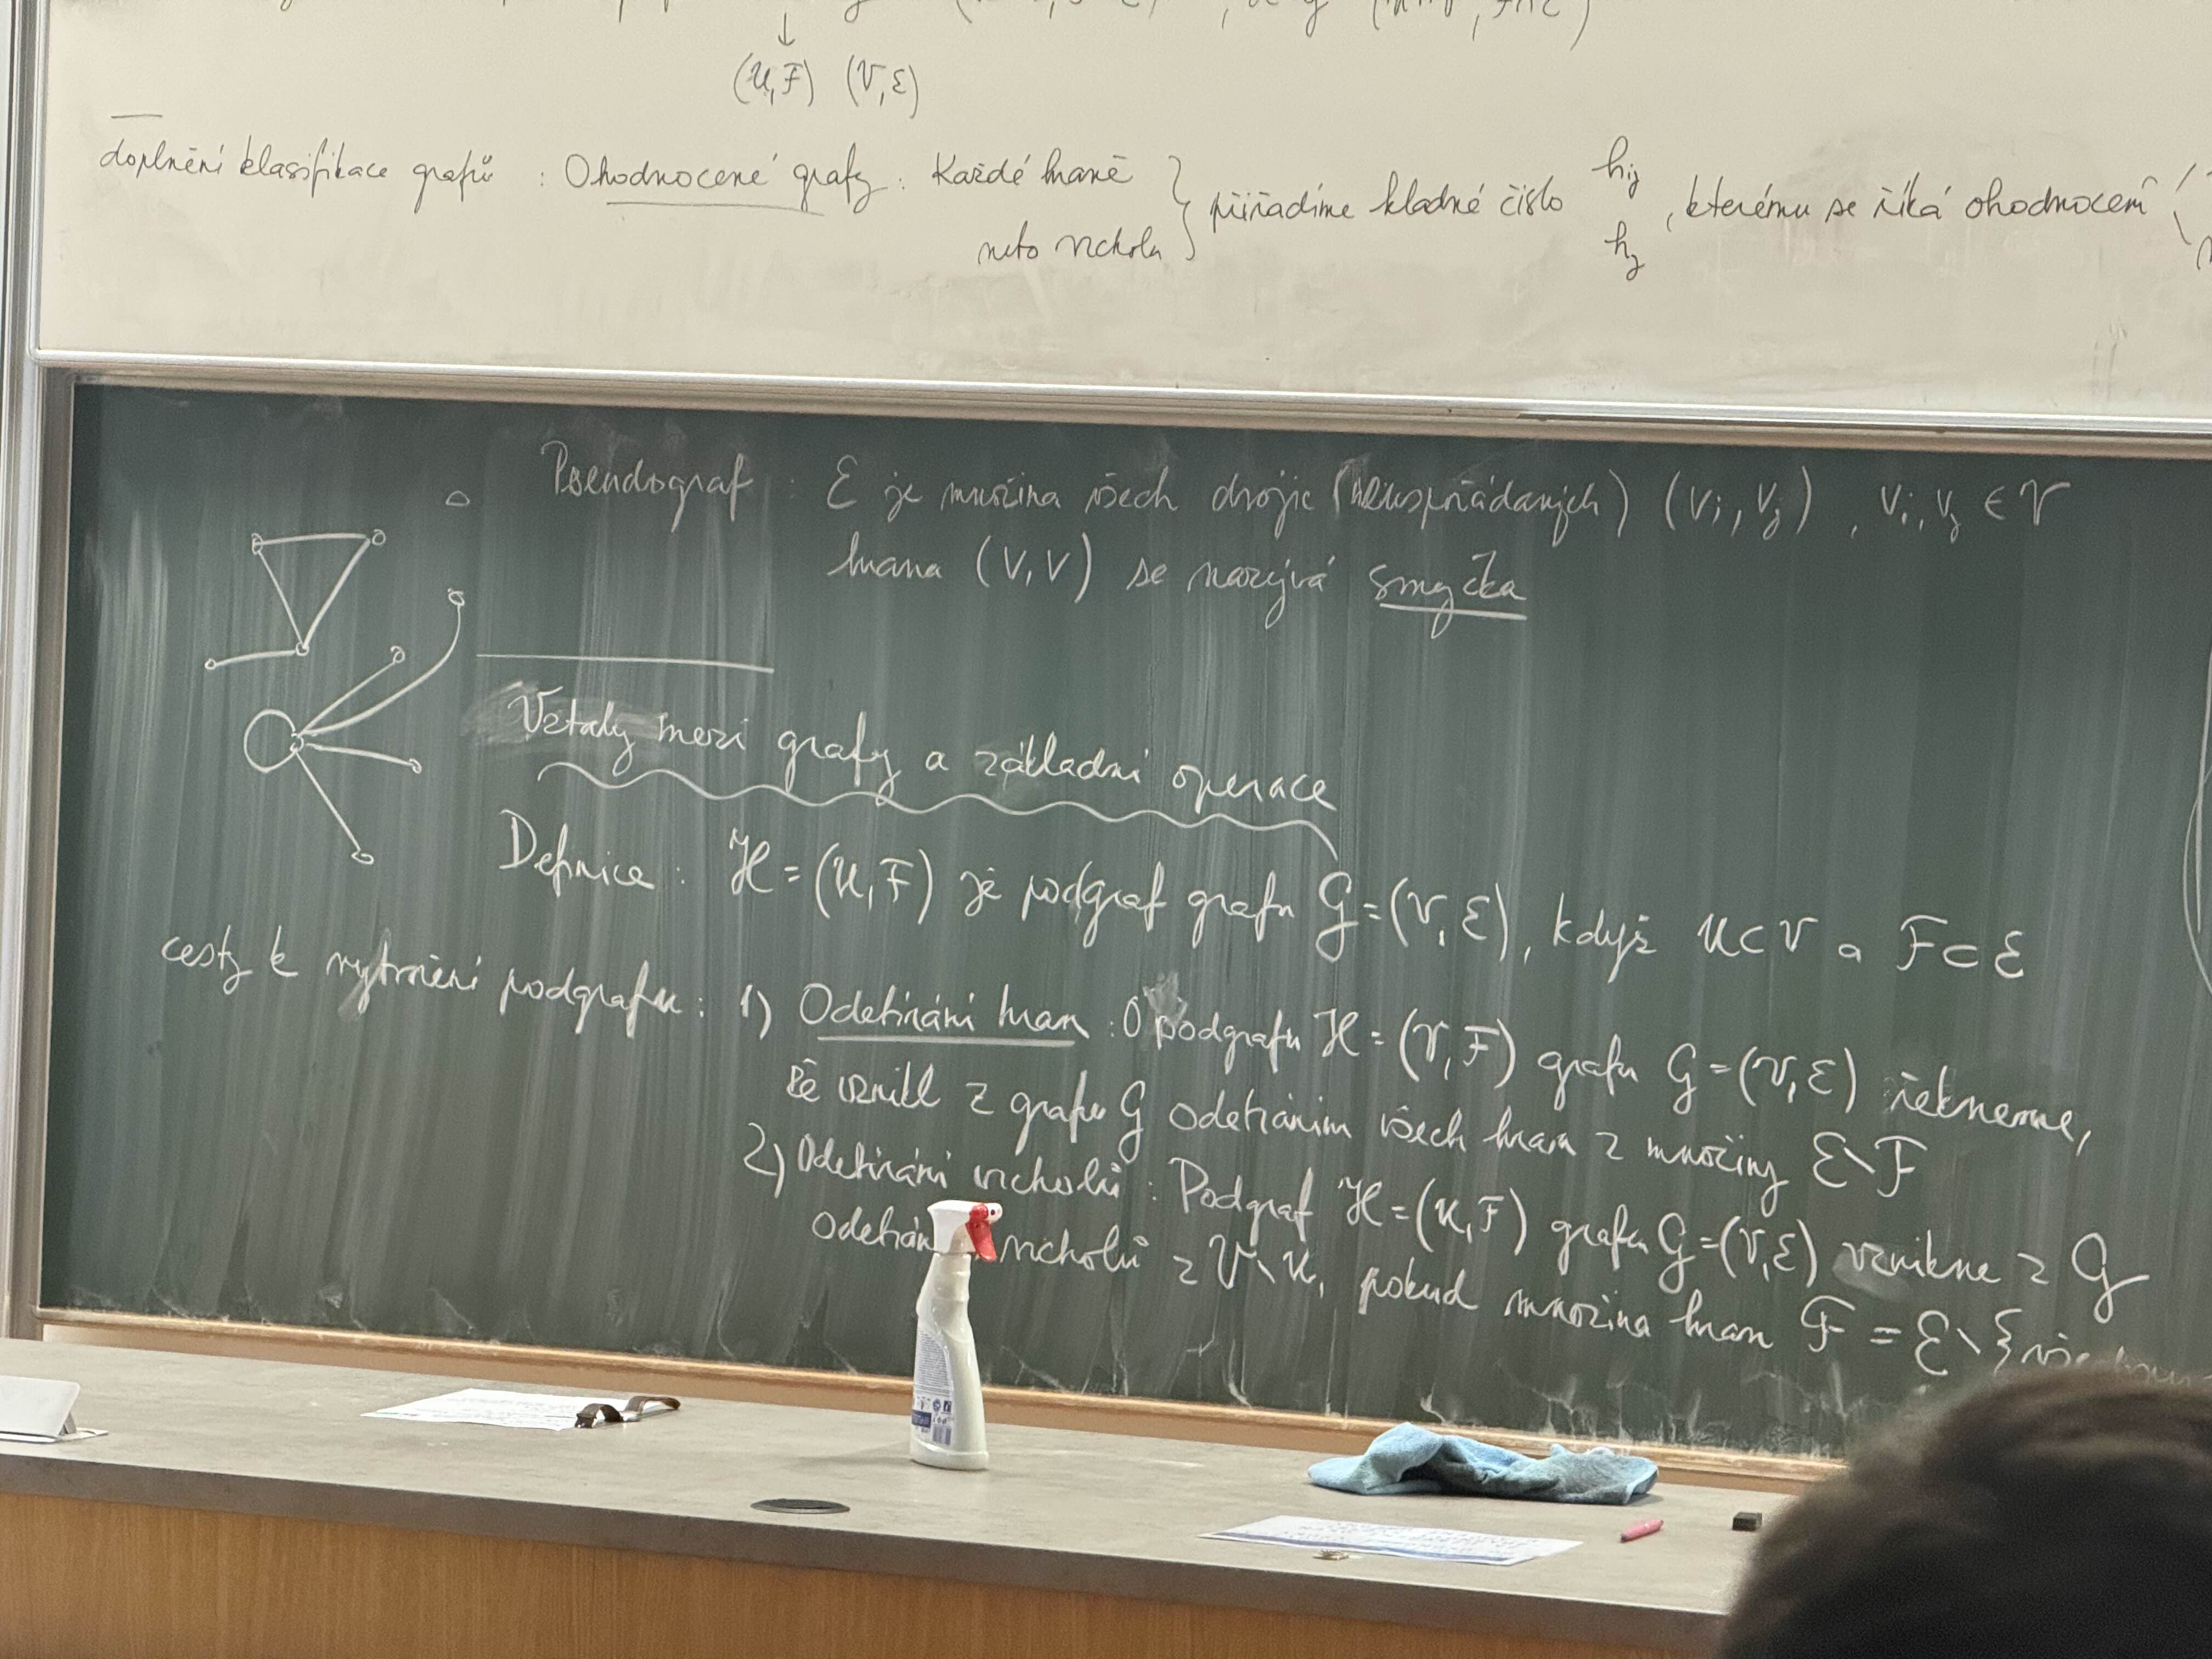 (U,F) (V,E)
doplnění klasifikace grafů : Ohodnocené grafy : Každé hraně
nebo vrcholu } přiřadíme kladné číslo h_ij h_j , kterému se říká ohodnocení
Pseudograf : E je množina všech dvojic (neuspořádaných) (v_i, v_j) , v_i, v_j ∈ V
hrana (v,v) se nazývá smyčka
Vztahy mezi grafy a základní operace
Definice : H = (U,F) je podgraf grafu G = (V,E), když U ⊂ V a F ⊂ E
cesty k vytvoření podgrafu : 1) Odebírání hran : O podgrafu H = (V,F) grafu G = (V,E) řekneme,
že vznikl z grafu G odebráním všech hran z množiny E∖F
2) Odebírání vrcholů : Podgraf H = (U,F) grafu G = (V,E) vznikne z G
vrcholů z V∖U, pokud množina hran F = E∖{